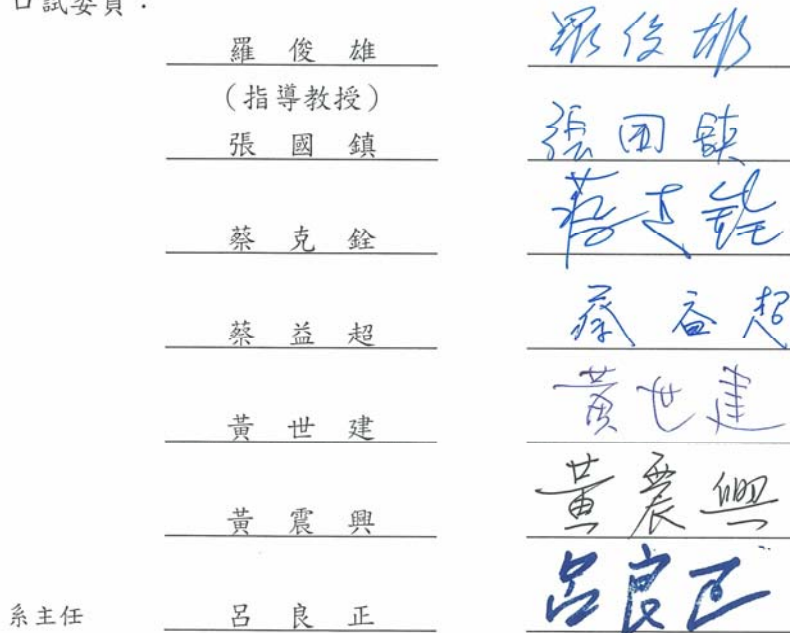 口試委員：
羅 俊 雄 羅 俊 雄
（指導教授）
張 國 鎮 張 国 鎮
蔡 克 銓 蔡 克 銓
蔡 益 超 蔡 益 超
黃 世 建 黃 世 建
黃 震 興 黃 震 興
系主任 呂 良 正 呂 良 正